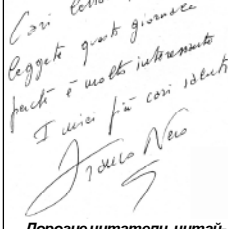 Cari lettori
leggete questo giornale
perché è molto interessante
I miei più cari saluti
Franco Nero
Дорогие читатели, читай-